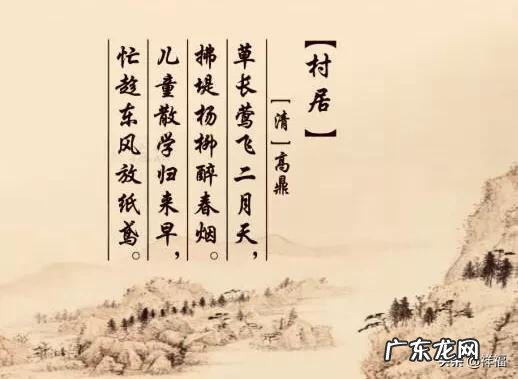 【村居】
[清]高鼎
草长莺飞二月天，
拂堤杨柳醉春烟。
儿童散学归来早，
忙趁东风放纸鸢。
广东龙网
头条@祥福